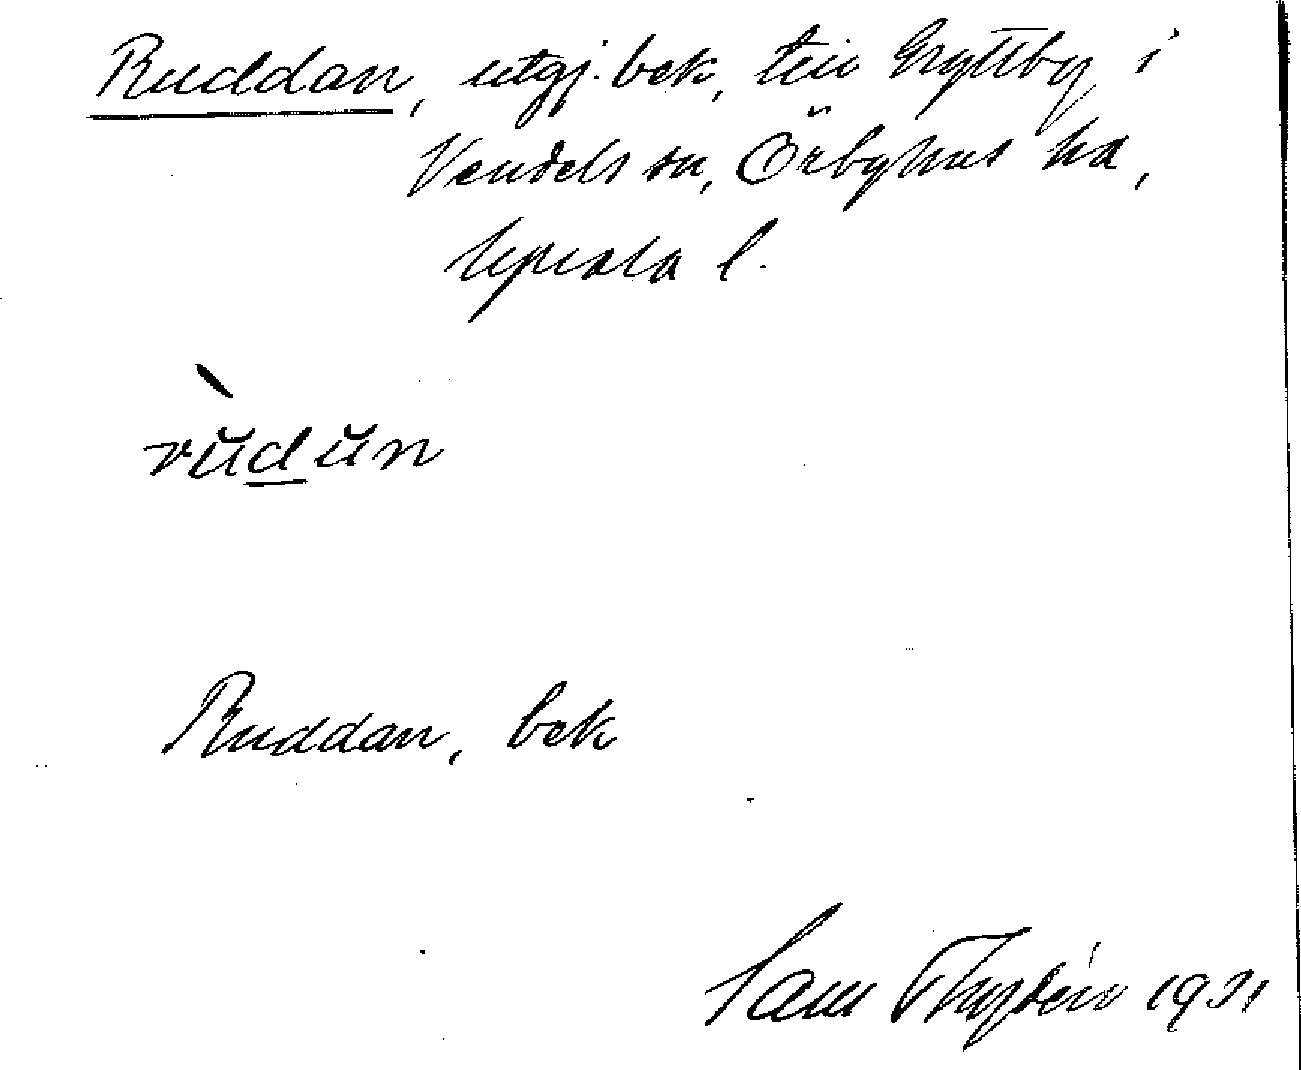 Ruddan, utgj. bek, till Gryttby i
Vendels sn, Örbyhus hd,
Uppsala l.
rŭdŭn
Ruddan, bek
Sam Thydén 1931